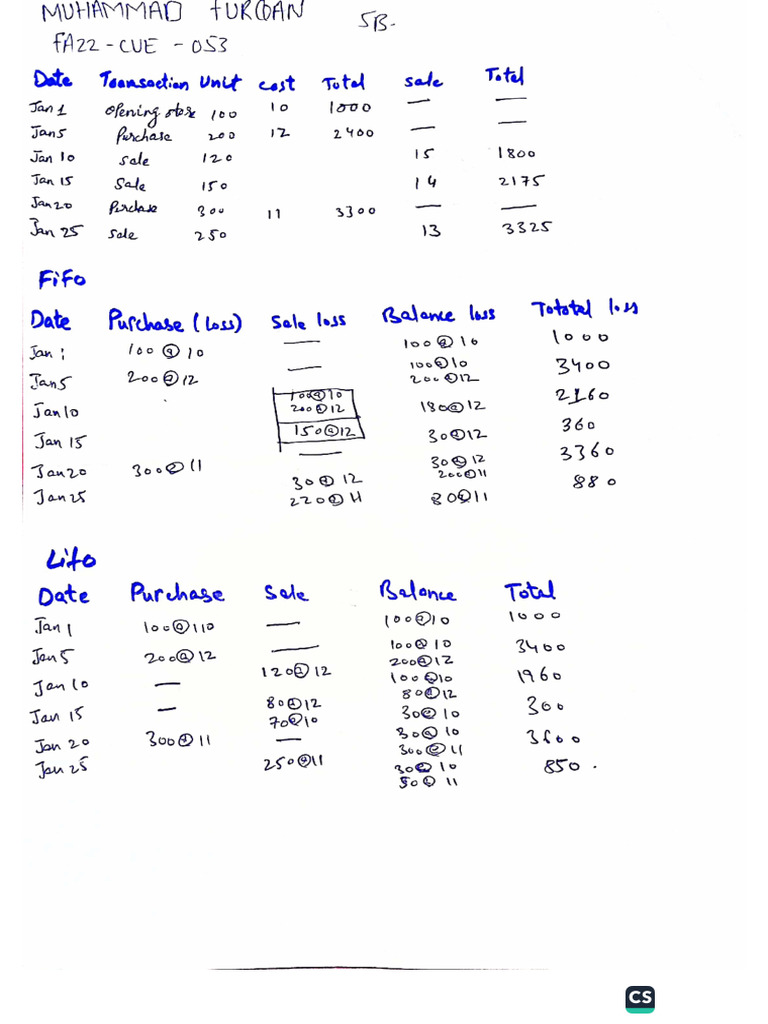 MUHAMMAD FURQAN 5B.
FA22-CUE-053
Date Transaction Unit cost Total sale Total
Jan 1 opening stock 100 10 1000 — —
Jan 5 Purchase 200 12 2400 — —
Jan 10 sale 120 15 1800
Jan 15 Sale 150 14 2175
Jan 20 Purchase 300 11 3300 — —
Jan 25 sale 250 13 3325
FiFo
Date Purchase (Loss) Sale loss Balance loss Tototal loss
Jan 1 100@10 — 100@10 1000
Jan 5 200@12 — 100@10 3400
200@12
Jan 10 100@10 2160
200@12 180@12
Jan 15 150@12 30@12 360
Jan 20 300@11 — 30@12 3360
200@11
Jan 25 30@12 80@11 880
220@11
Lifo
Date Purchase Sale Balance Total
Jan 1 100@110 — 100@10 1000
Jan 5 200@12 — 100@10 3400
200@12
Jan 10 — 120@12 100@10 1960
80@12
Jan 15 — 80@12 30@10 300
70@10
Jan 20 300@11 — 30@10 3600
300@11
Jan 25 250@11 30@10 850.
50@11
CS